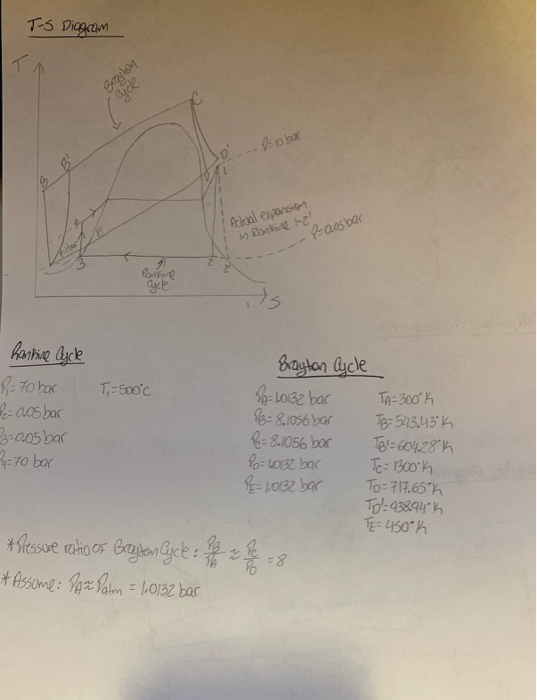 T-S Diagram
T
Brayton
cycle
C
P=10 bar
B
B'
D'
1
D
Actual expansion
in Rankine 1-2'
P=0.05 bar
4
E
3
2
2'
Rankine
cycle
S
Rankine Cycle
P₁=70 bar T₁=500°C
P₂=0.05 bar
P₃=0.05 bar
P₄=70 bar
Brayton Cycle
P_A=1.0132 bar T_A=300°K
P_B=8.1056 bar T_B=543.43°K
P_C=8.1056 bar T_B'=604.28°K
P_D=1.0132 bar T_C=1300°K
P_E=1.0132 bar T_D=717.65°K
T_D'=938.94°K
T_E=450°K
*Pressure ratio of Brayton Cycle: P_B/P_A ≈ P_C/P_D = 8
*Assume: P_A≈P_atm = 1.0132 bar